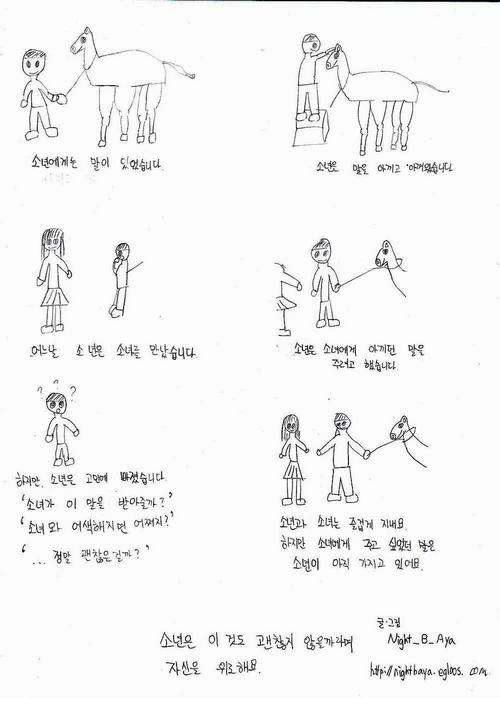 소년에게는 말이 있었습니다.
소년은 말을 아끼고 아껴왔습니다.
어느날 소년은 소녀를 만났습니다.
소년은 소녀에게 아끼던 말을
주려고 했습니다.
? ? ?
하지만, 소년은 고민에 빠졌습니다
'소녀가 이 말을 받아줄까?'
'소녀와 어색해지면 어쩌지?'
'... 정말 괜찮은걸까?'
소년과 소녀는 즐겁게 지내요.
하지만 소녀에게 주고 싶었던 말은
소년이 아직 가지고 있어요.
소년은 이 것도 괜찮지 않을까라며
자신을 위로해요.
글·그림
Night_B_Aya
http://nightbaya.egloos.com